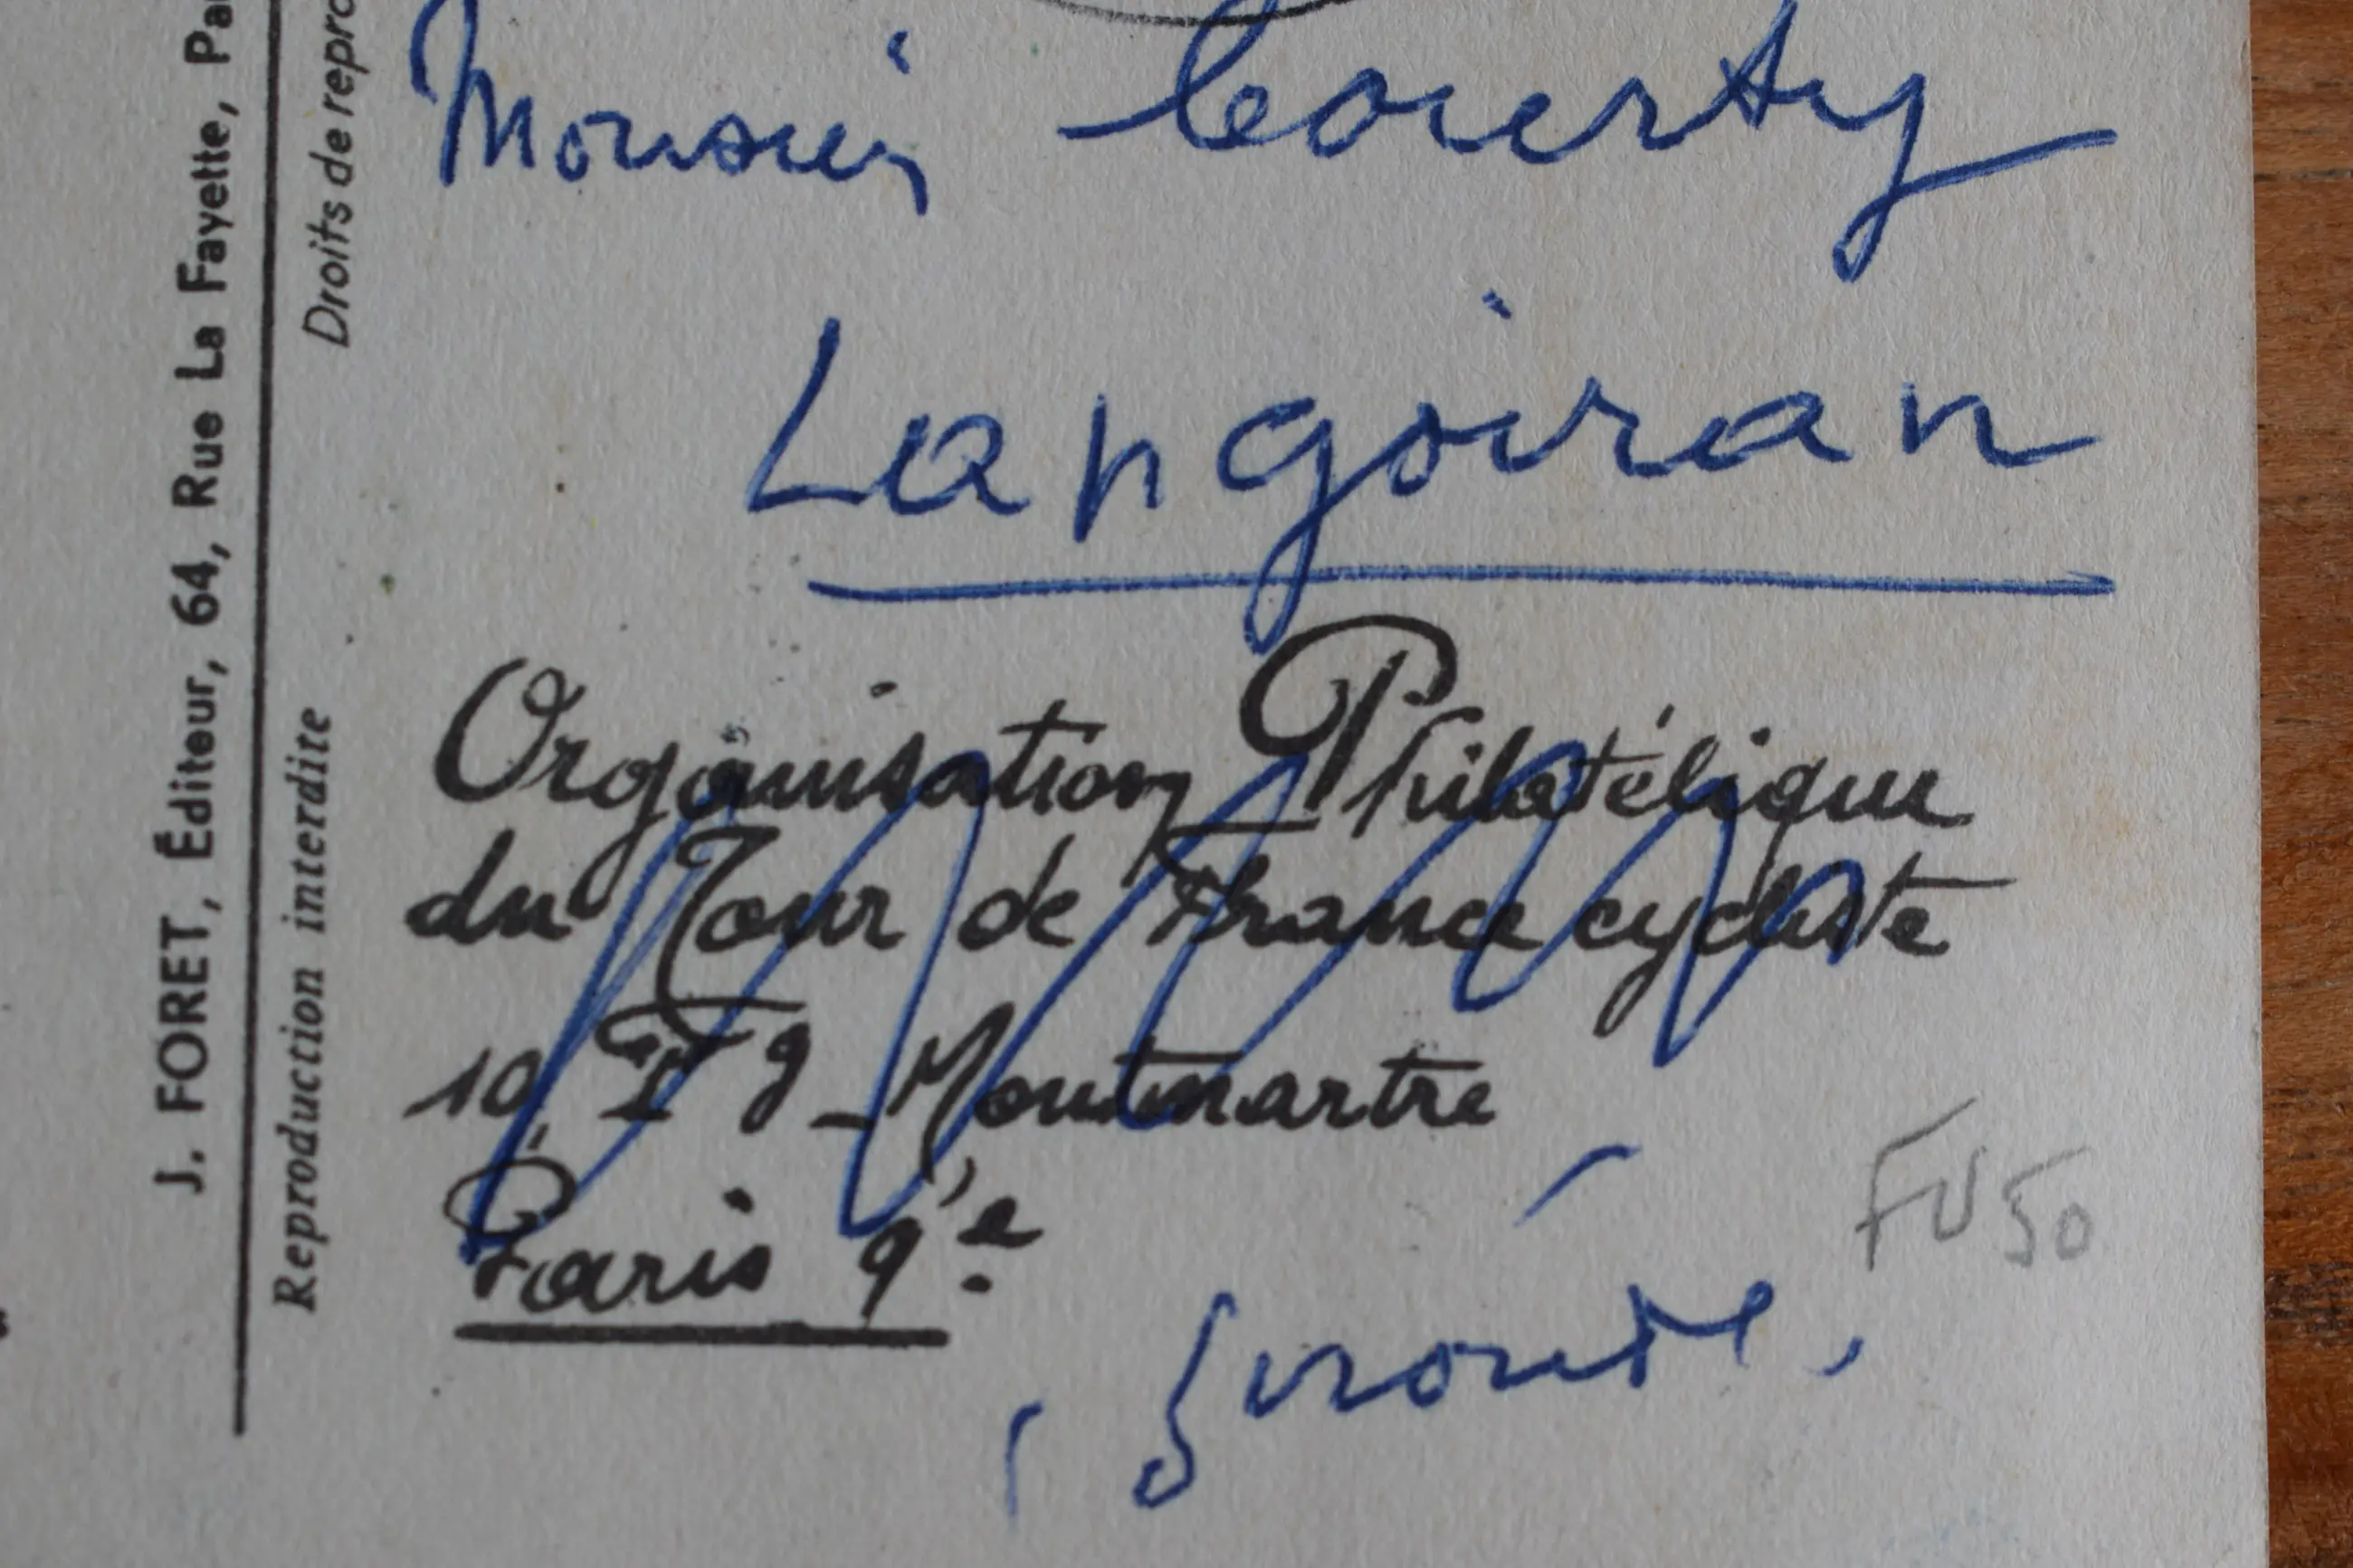 J. FORET, Éditeur, 64, Rue La Fayette, Pa
Reproduction interdite
Droits de repro
Monsieur Courty
Langoiran
Organisation Philatélique
du Tour de France cycliste
10, Fg Montmartre
Paris 9e
(Gironde)
FU 50